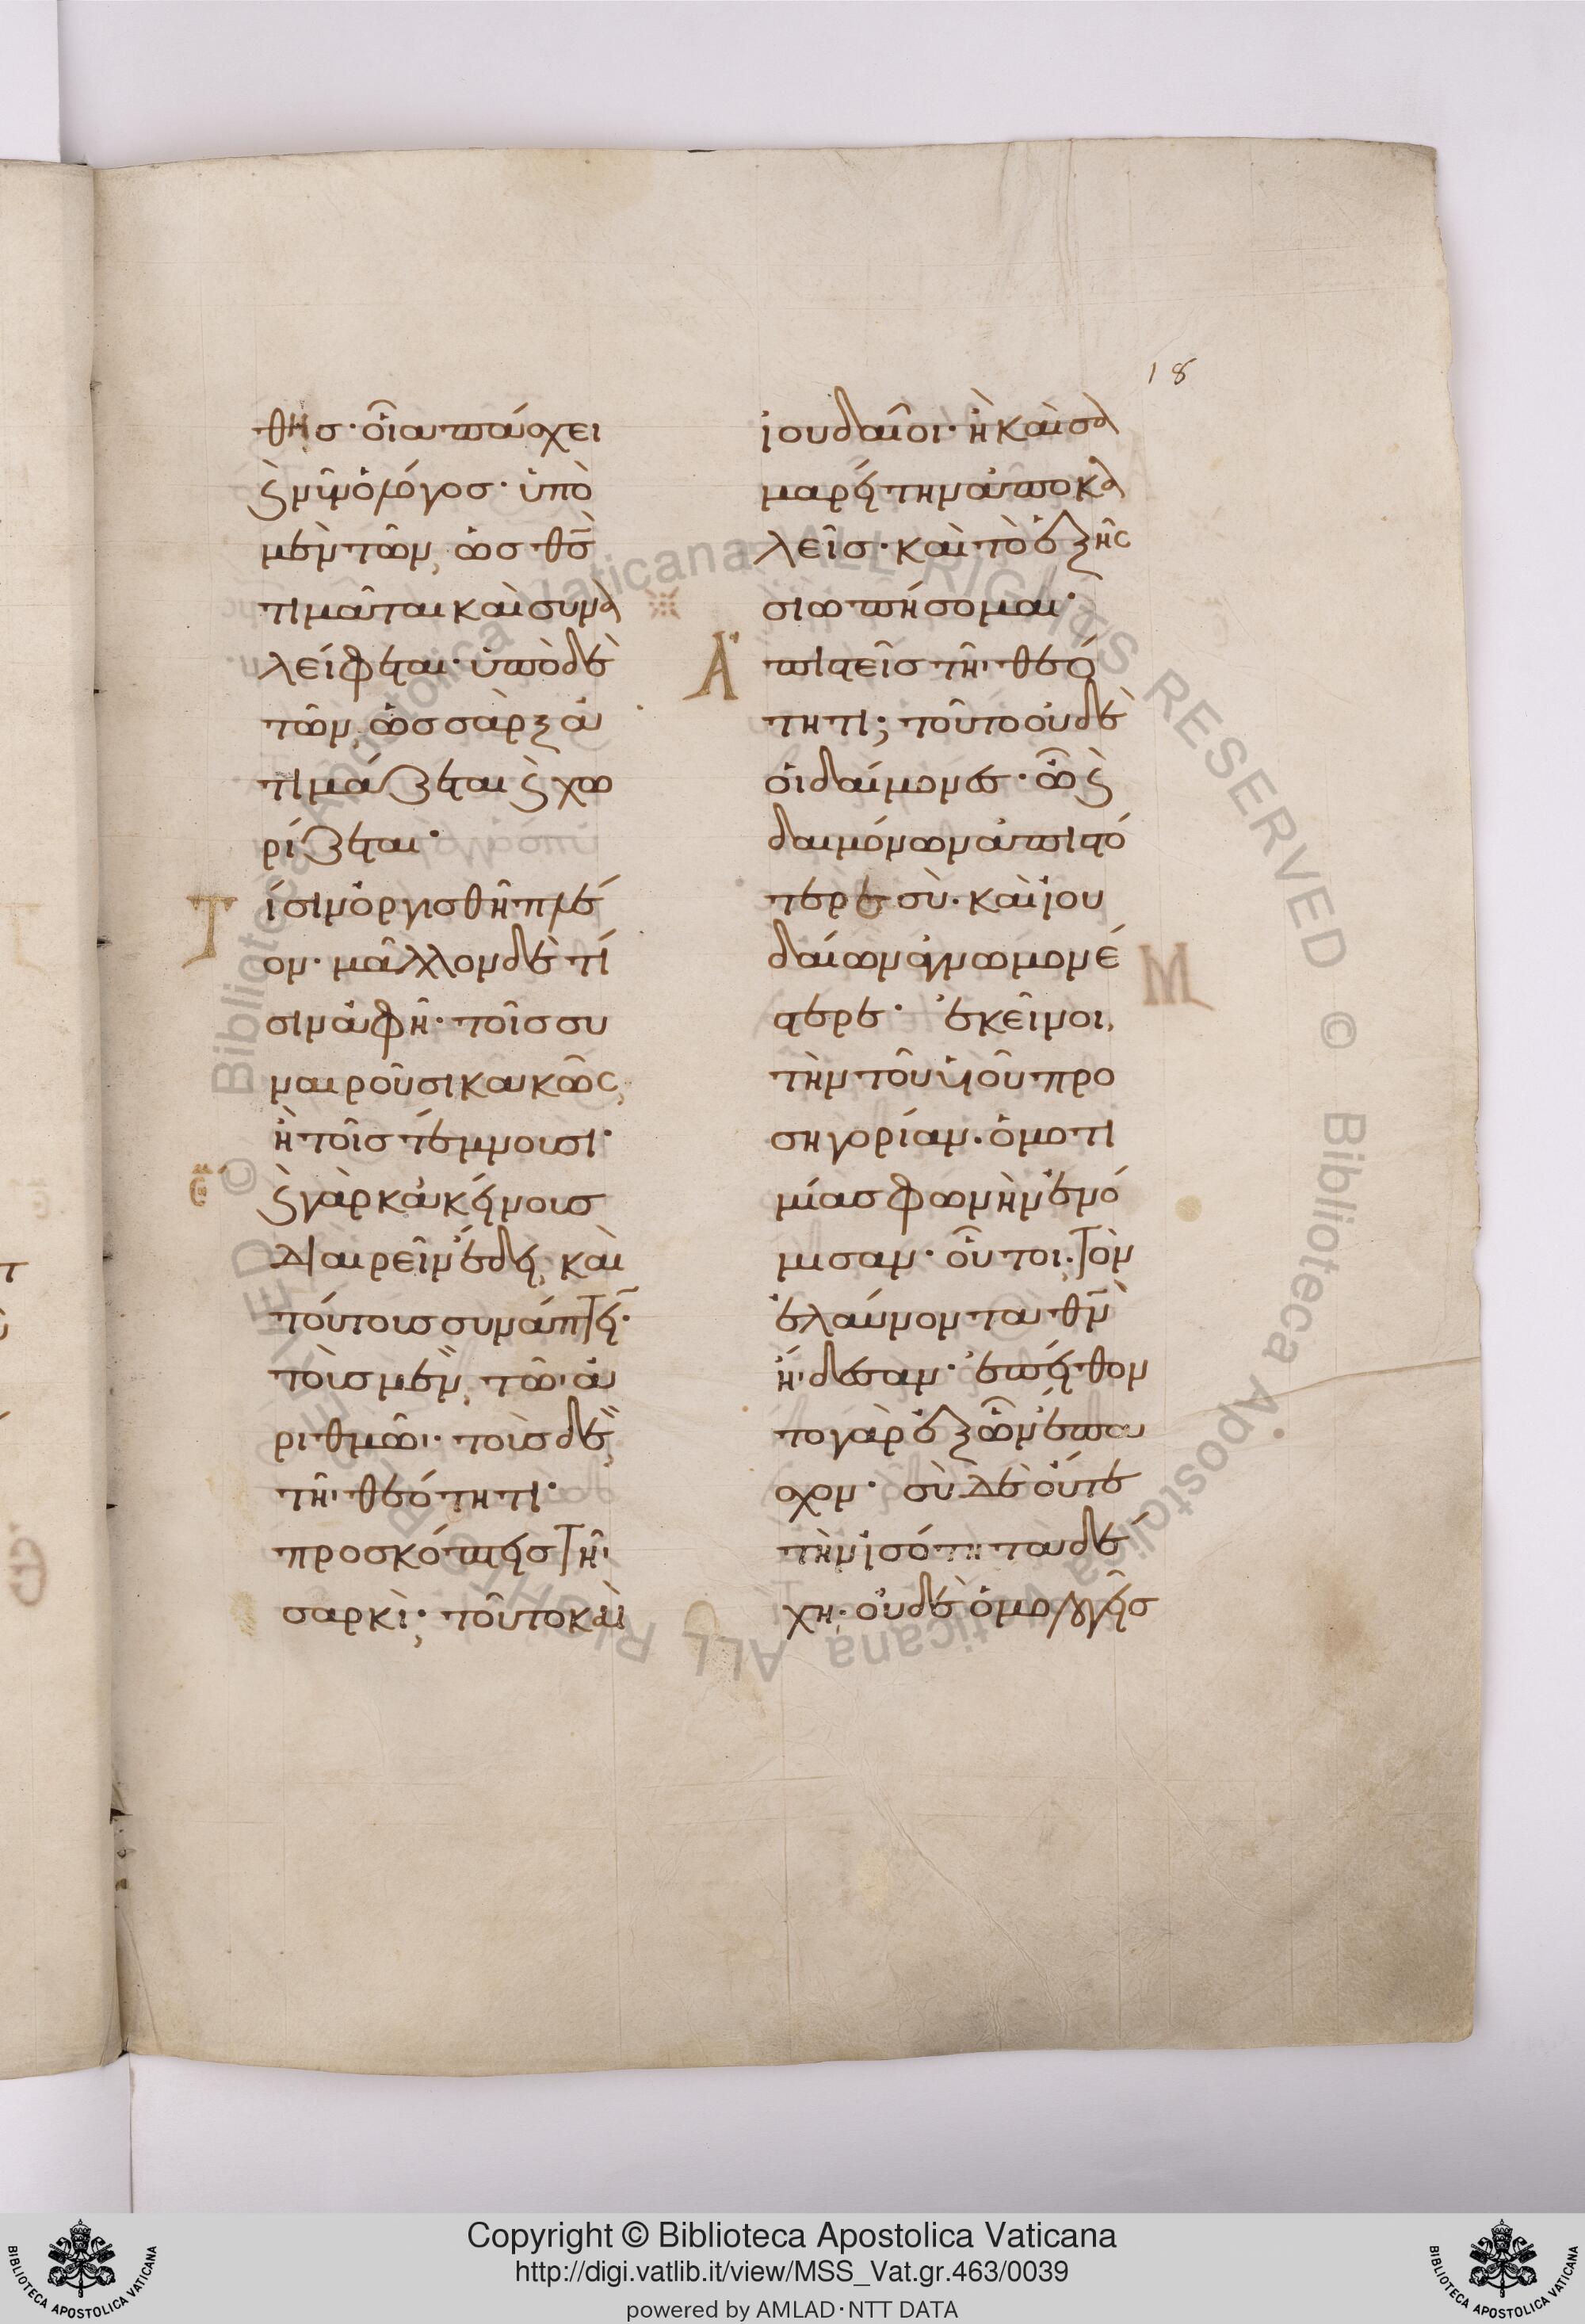 18
θησ· οἷα πάσχει
καὶ νῦν ὁ λόγοσ· ὑπὸ
μὲν τῶν, ὡσ θσ̄
τιμᾶται καὶ συνα
λείφεται· ὑπὸ δὲ
τῶν, ὡσ σὰρξ ἀ
τιμάζεται καὶ χω
ρίζεται·
Τίσιν ὀργισθῆ πλέ
ον· μᾶλλον δὲ τί
σιν ἀφῆ· τοῖσ συ
ναιροῦσι κακῶς,
ἢ τοῖσ τέμνουσι·
καὶ γὰρ κἀκείνουσ
διαιρεῖν ἔδει, καὶ
τούτουσ συνάπτειν·
τοὺσ μὲν, τῶι ἀ
ριθμῶι· τοὺσ δὲ,
τῆι θεότητι·
προσκόπτεισ τῆι
σαρκὶ; τοῦτο καὶ
ἰουδαῖοι· ἢ καὶ σα
μαρείτην ἀποκα
λεῖσ· καὶ τὸ ἑξῆς
σιωπήσομαι·
Ἀπιστεῖσ τῆι θεό
τητι; τοῦτο οὐδὲ
οἱ δαίμονεσ· ὦ καὶ
δαιμόνων ἀπιστό
τερε σὺ· καὶ ἰου
δαίων ἀγνωμονέ
στερε· ἐκεῖνοι,
τὴν τοῦ υἱοῦ προ
σηγορίαν· ὁμοτι
μίασ φωνὴν ἐνό
μισαν· οὗτοι, τὸν
ἐλαύνοντα θν̄
ἤιδεσαν· ἐπείθον
το γὰρ ἐξ ὧν ἔπα
σχον· σὺ δὲ οὔτε
τὴν ἰσότητα δέ
χη· οὐδὲ ὁμολογεῖσ
Copyright © Biblioteca Apostolica Vaticana
http://digi.vatlib.it/view/MSS_Vat.gr.463/0039
powered by AMLAD·NTT DATA